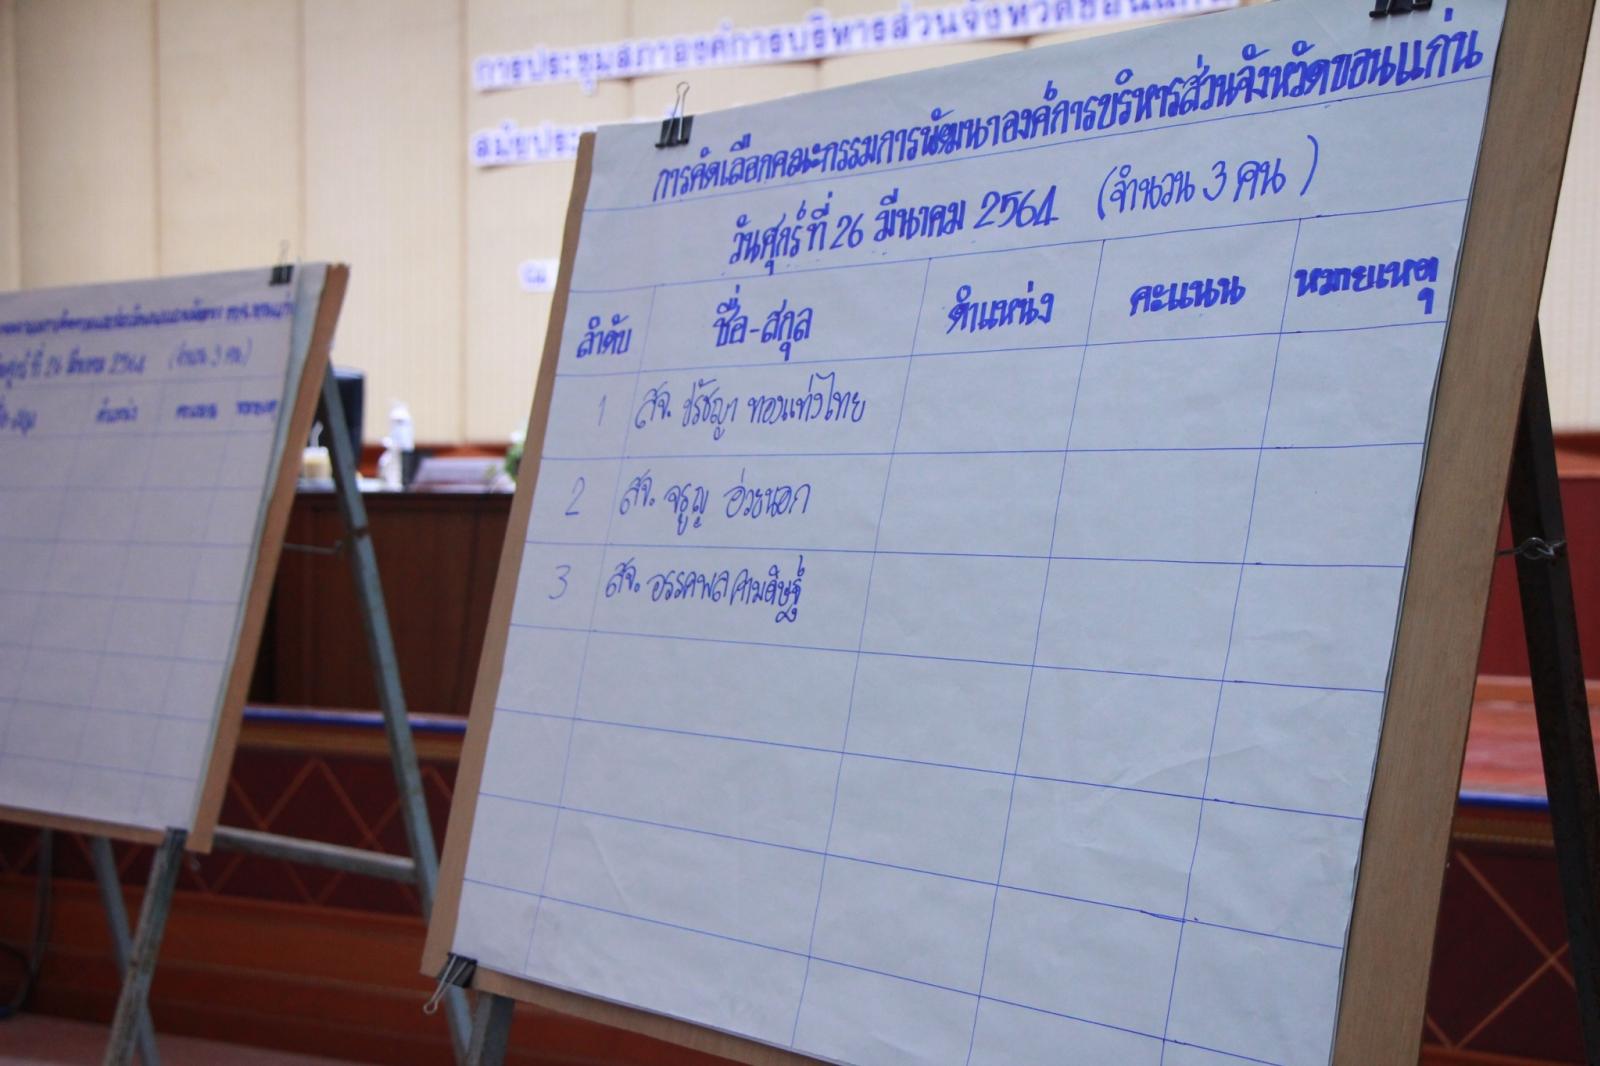 การประชุมสภาองค์การบริหารส่วนจังหวัดขอนแก่น
สมัยประ
ณ
การคัดเลือกคณะกรรมการพัฒนาองค์การบริหารส่วนจังหวัดขอนแก่น
วันศุกร์ ที่ 26 มีนาคม 2564 (จำนวน 3 คน )
ลำดับ ชื่อ-สกุล ตำแหน่ง คะแนน หมายเหตุ
1 สจ. ปรัชญา ทองแท่งไทย
2 สจ. จรูญ อ่วยนอก
3 สจ. อรรคพล
ศุกร์ ที่ 26 มีนาคม 2564 (จำนวน 3 คน)
ชื่อ-สกุล ตำแหน่ง คะแนน หมายเหตุ